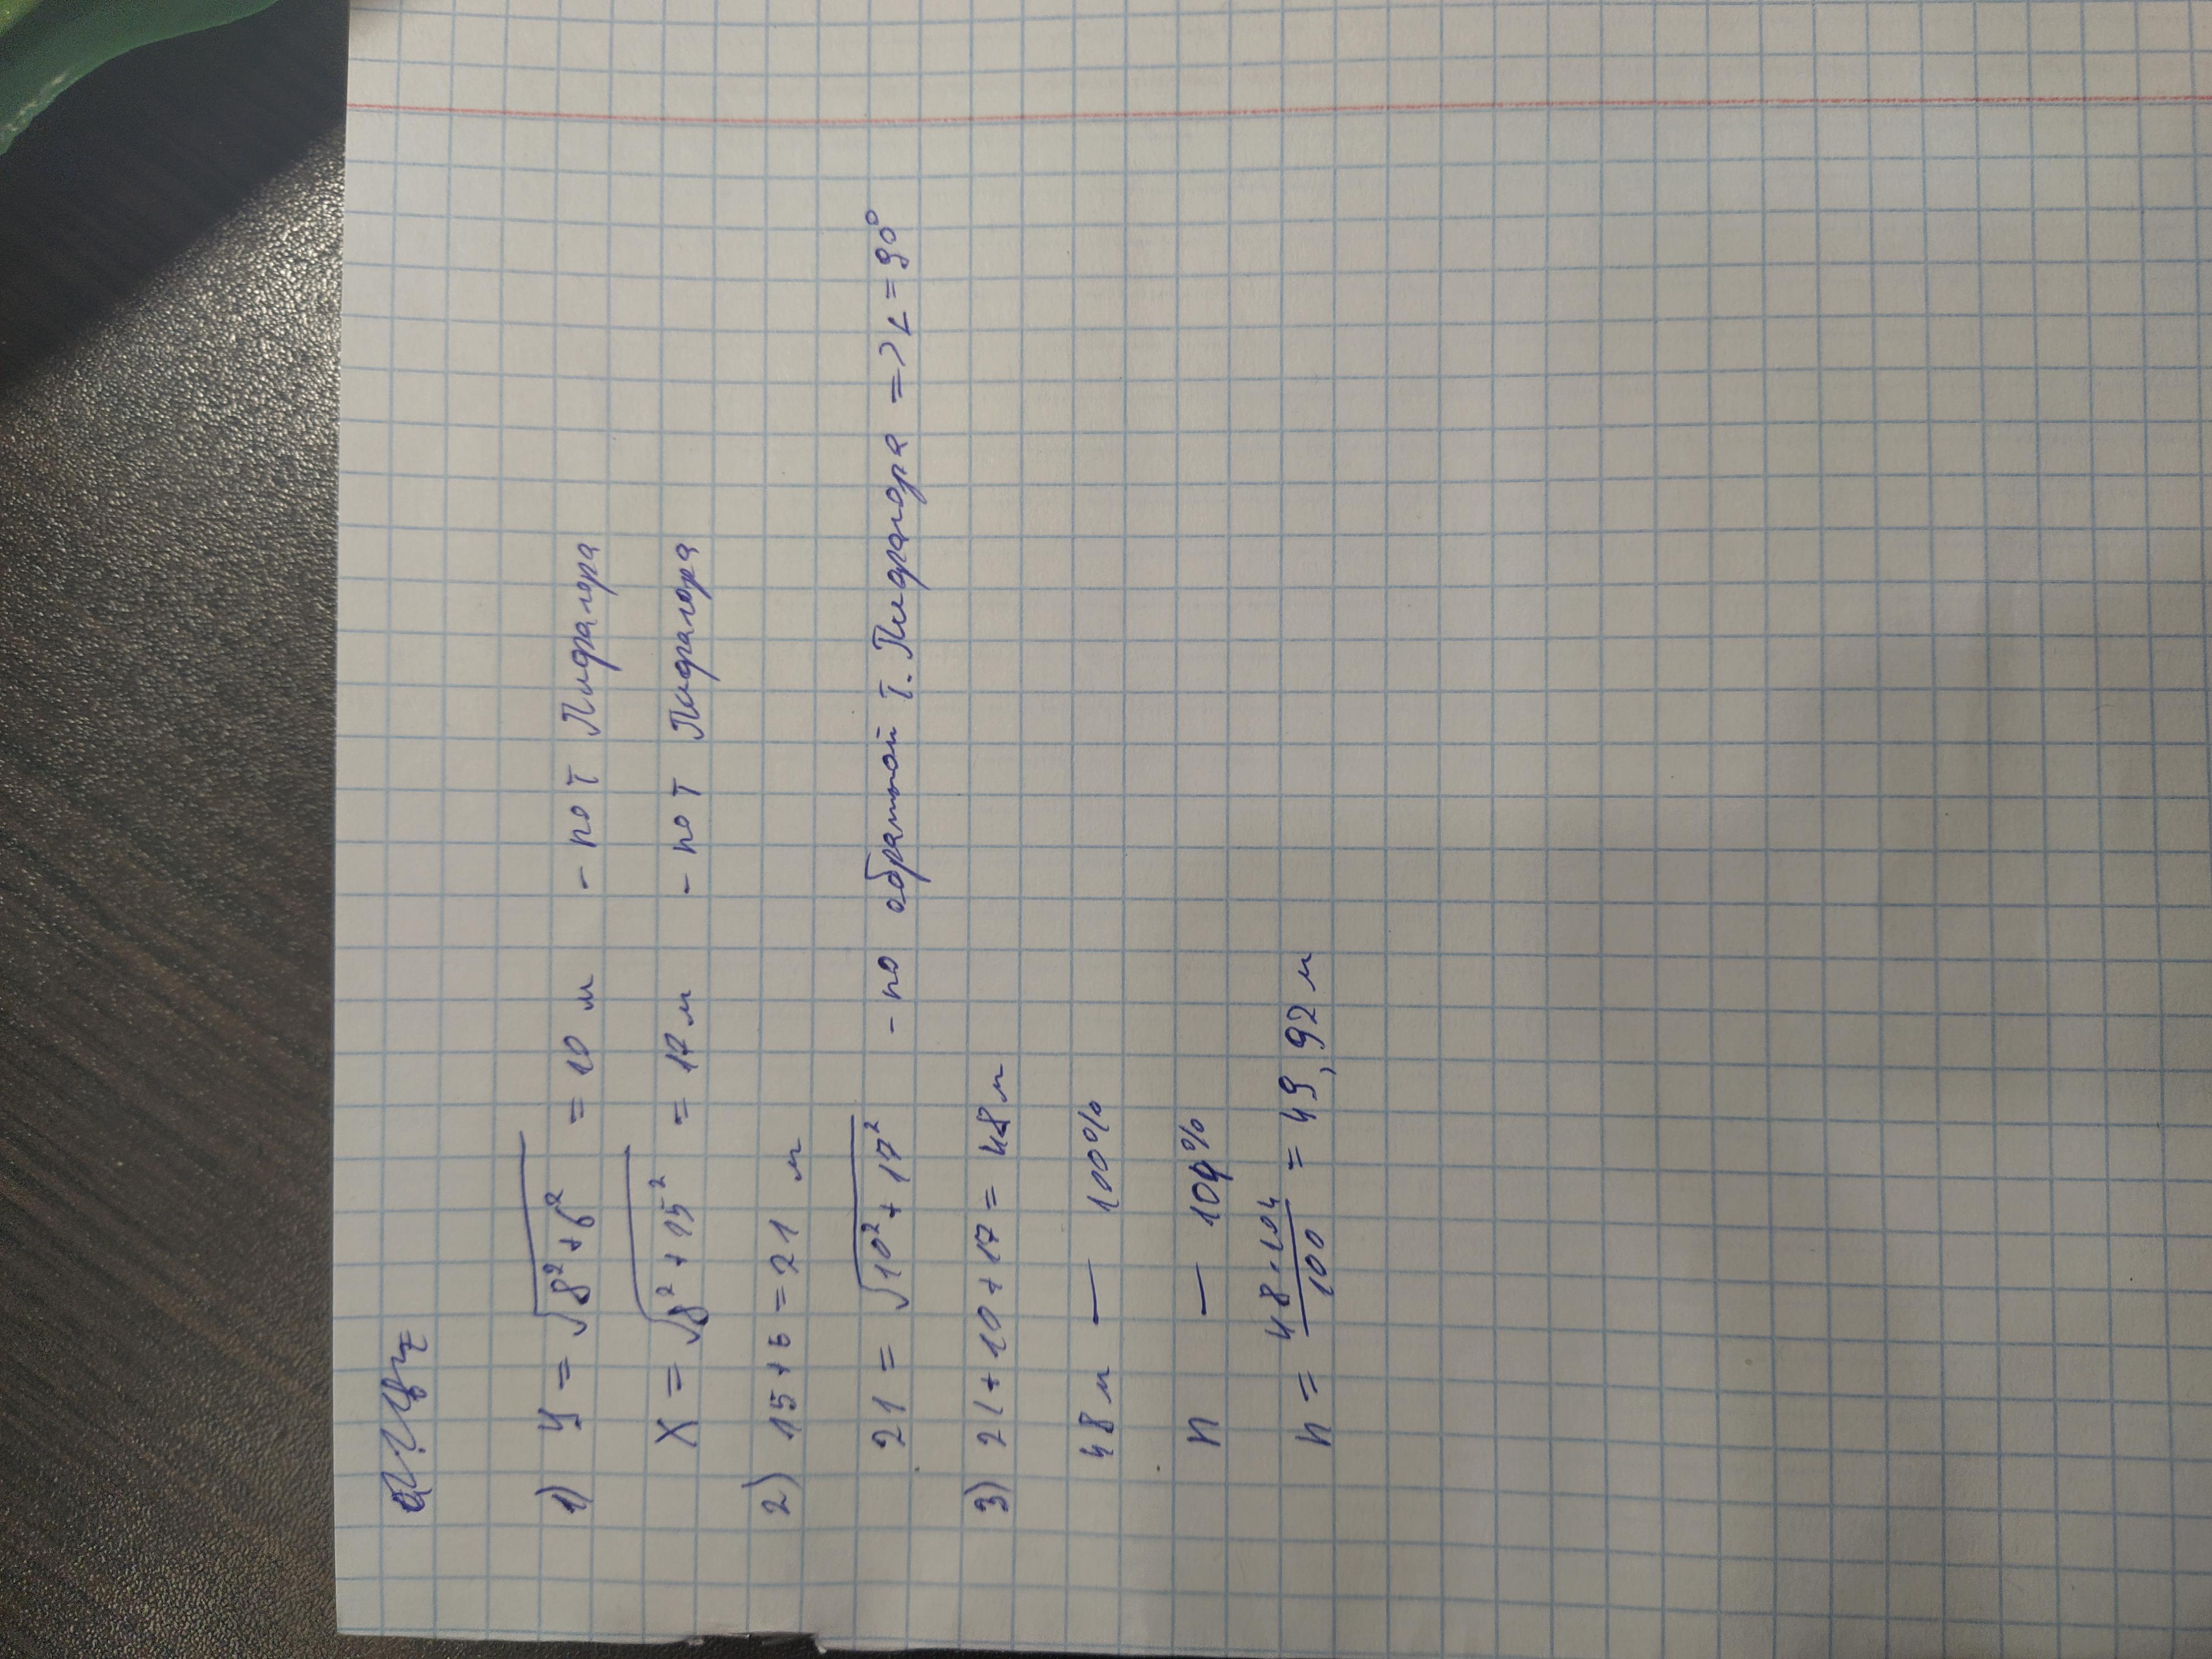 1) y = √8²+6² = 10 м - по т Пифагора
x = √8²+15² = 17 м - по т Пифагора
2) 15+6=21 м
21 = √10²+17² - по обратной т. Пифагора => ∠ = 90°
3) 21+10+17= 48 м
48 м — 100%
n — 104%
n = 48·104/100 = 49,92 м